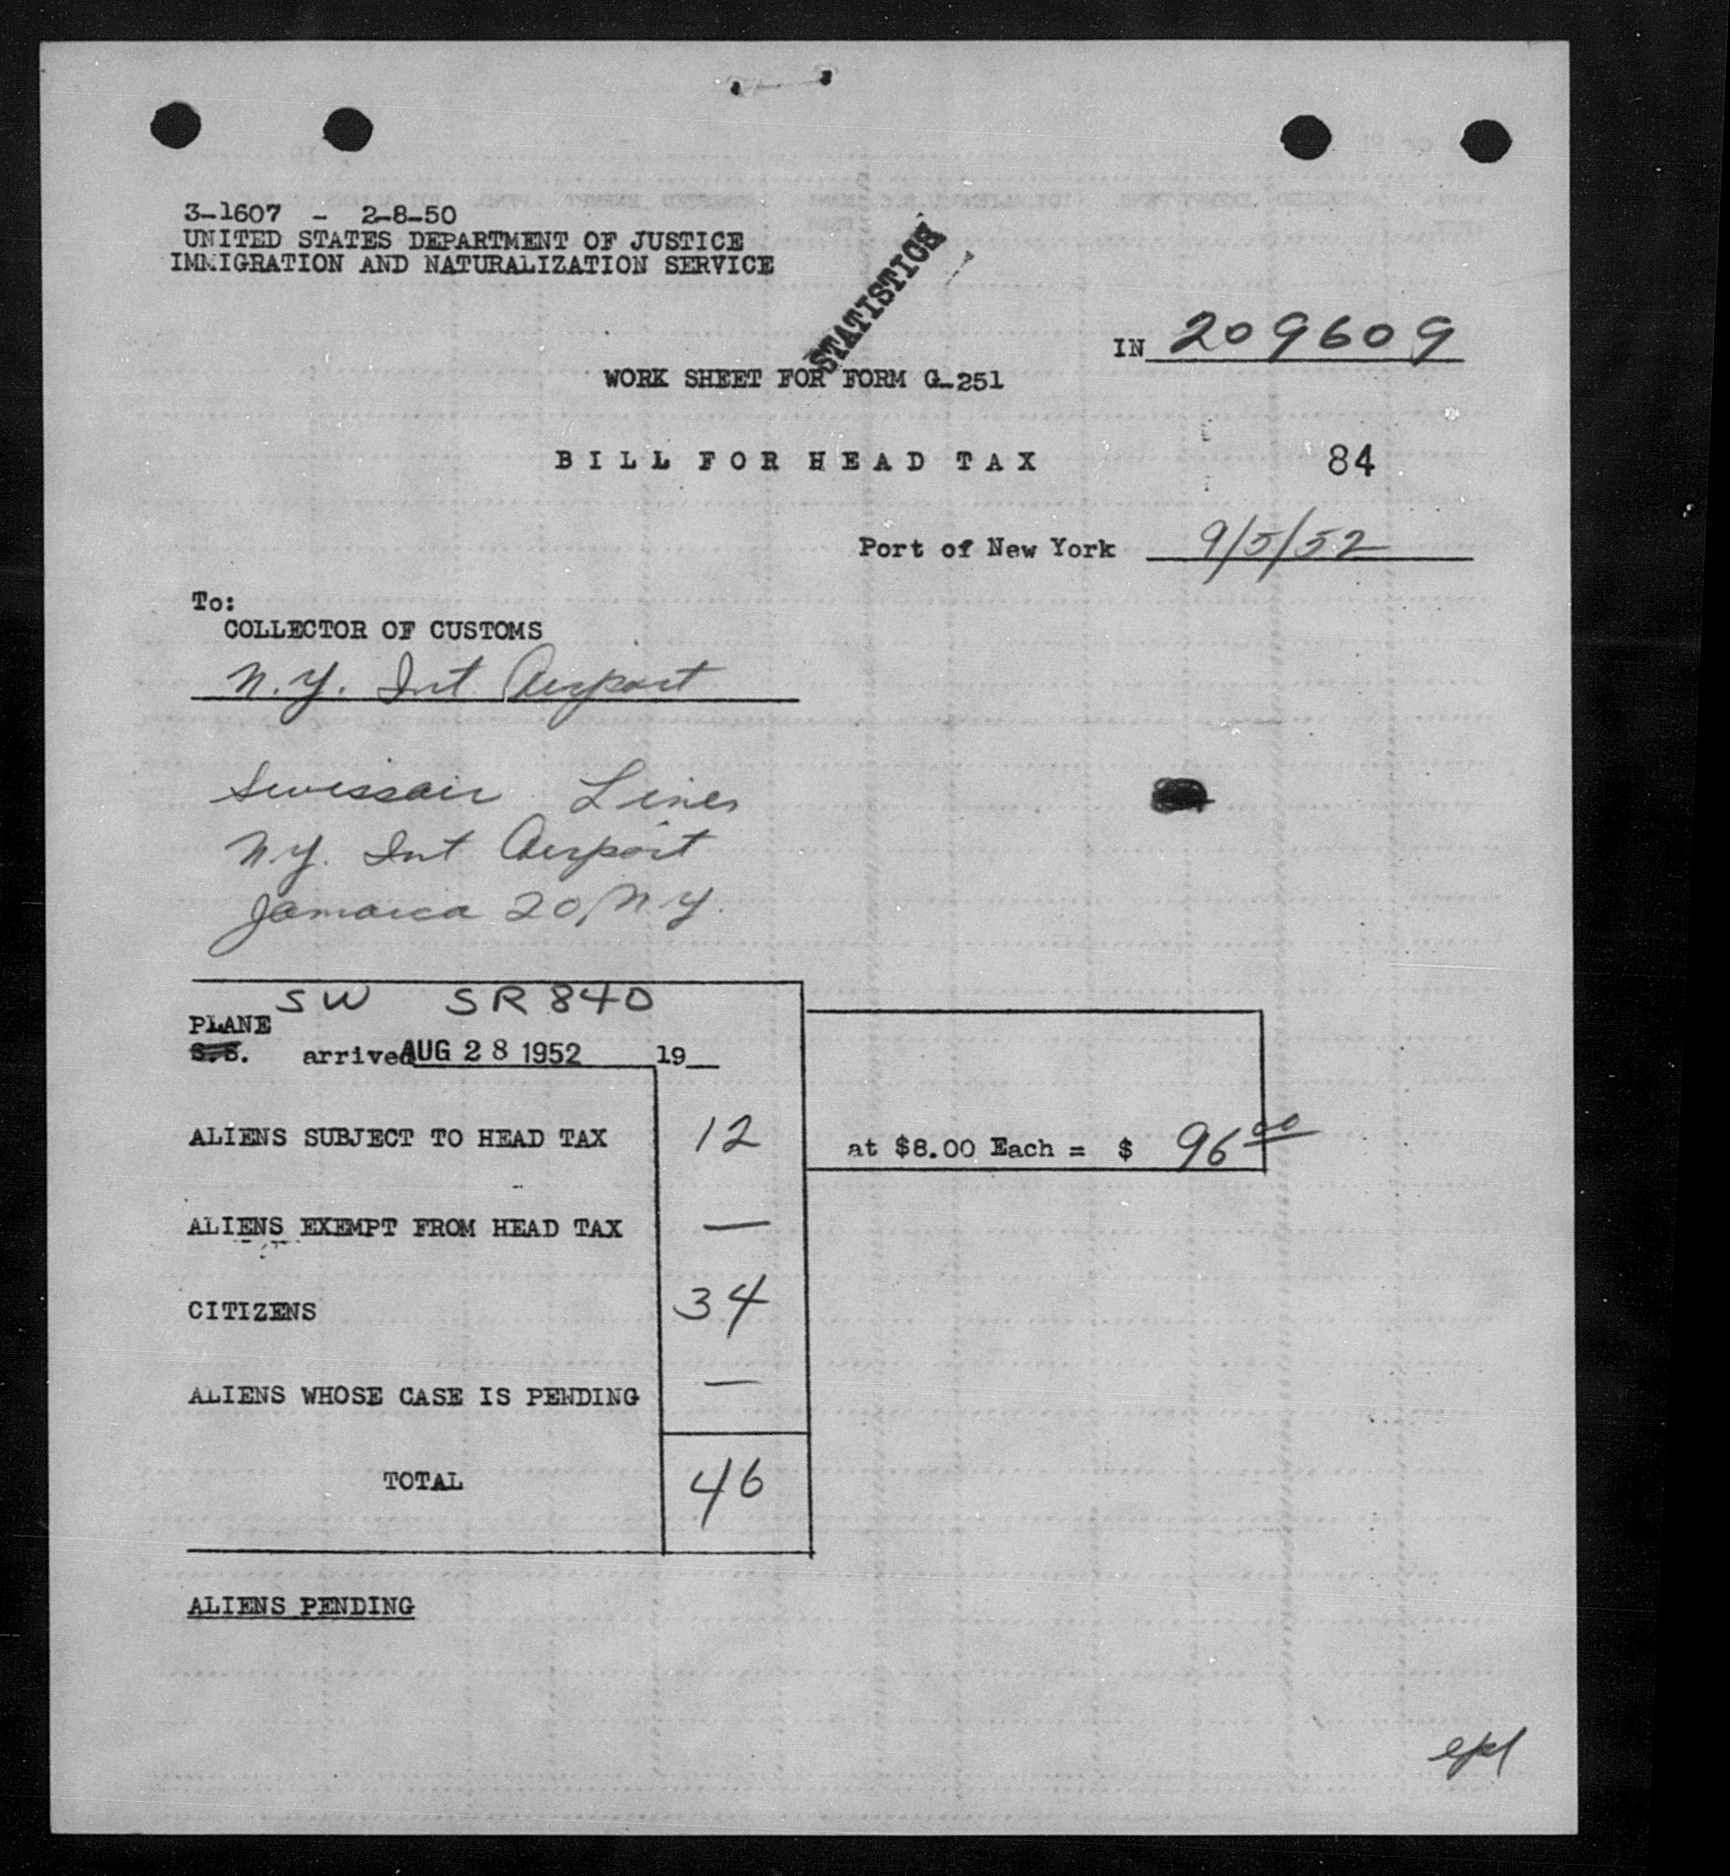 3-1607 - 2-8-50
UNITED STATES DEPARTMENT OF JUSTICE
IMMIGRATION AND NATURALIZATION SERVICE
STATISTICS
IN 209609
WORK SHEET FOR FORM G-251
BILL FOR HEAD TAX
84
Port of New York 9/5/52
To:
COLLECTOR OF CUSTOMS
N.Y. Int Airport
Swissair Lines
N.Y. Int Airport
Jamaica 20, N.Y.
SW SR 840
PLANE
S.S. arrived AUG 28 1952 19__
ALIENS SUBJECT TO HEAD TAX 12 at $8.00 Each = $ 96 00
ALIENS EXEMPT FROM HEAD TAX —
CITIZENS 34
ALIENS WHOSE CASE IS PENDING —
TOTAL 46
ALIENS PENDING